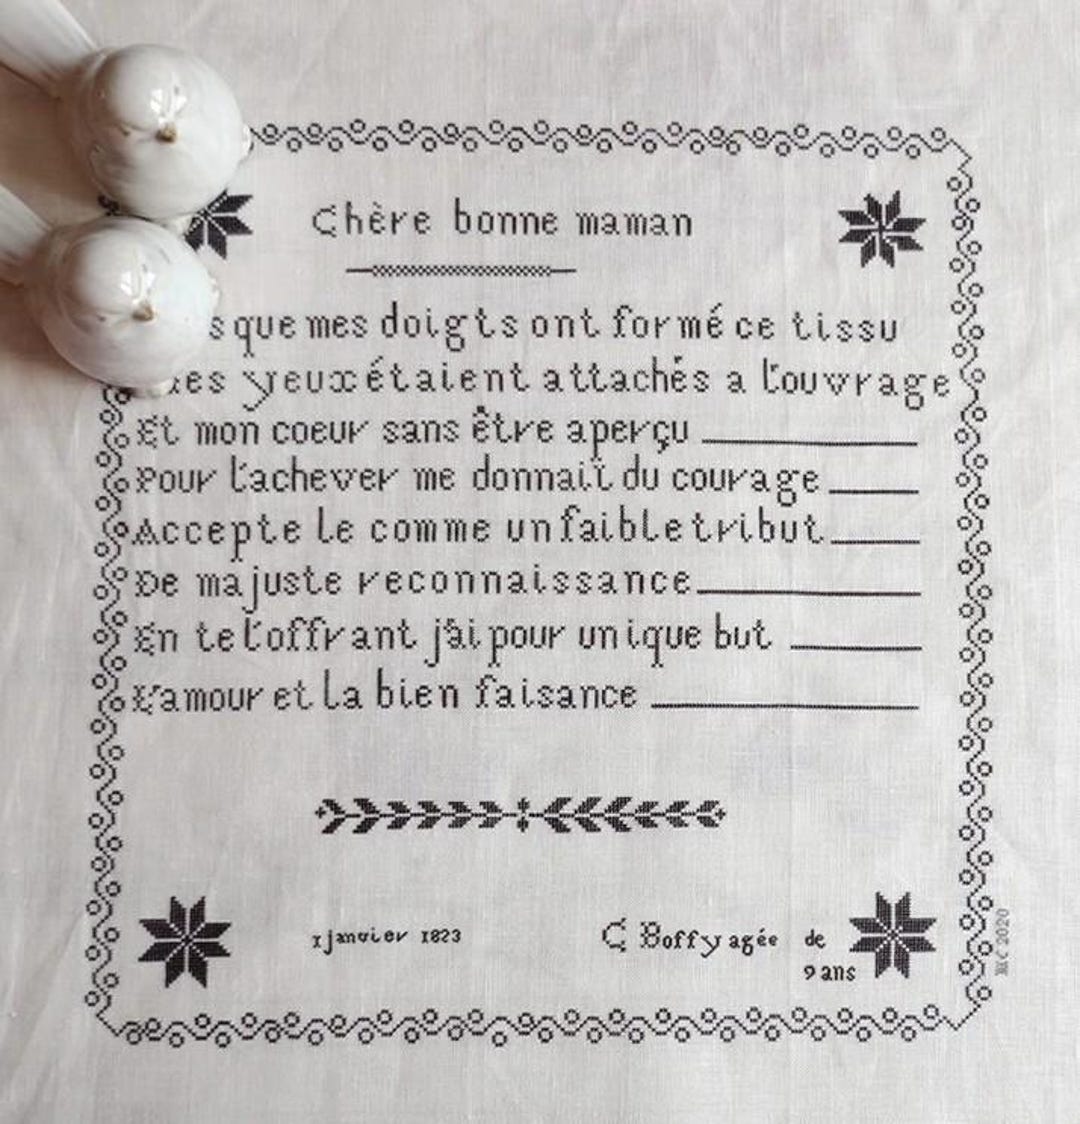 Chère bonne maman
que mes doigts ont formé ce tissu
yeux étaient attachés a l'ouvrage
Et mon coeur sans être aperçu
Pour l'achever me donnait du courage
Accepte le comme un faible tribut
De ma juste reconnaissance
En te l'offrant j'ai pour unique but
L'amour et la bien faisance
1 janvier 1823
C Boffy agée de
9 ans
MC 2020